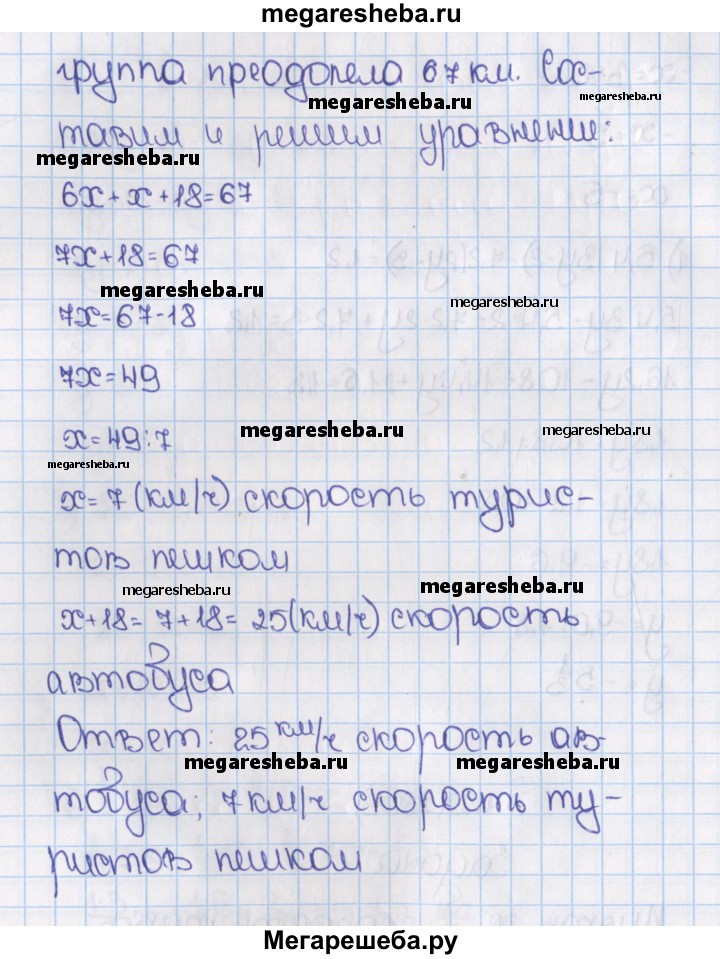 megaresheba.ru
группа преодолела 67 км. Сос-
megaresheba.ru
megaresheba.ru
тавим и решим уравнение:
megaresheba.ru
6x+x+18=67
7x+18=67
megaresheba.ru
megaresheba.ru
7x=67-18
7x=49
x=49:7
megaresheba.ru
megaresheba.ru
megaresheba.ru
x=7(км/ч) скорость турис-
тов пешком
megaresheba.ru
megaresheba.ru
x+18=7+18=25(км/ч) скорость
автобуса
Ответ: 25 км/ч скорость ав-
megaresheba.ru
megaresheba.ru
тобуса; 7км/ч скорость ту-
ристов пешком
Мегарешеба.ру